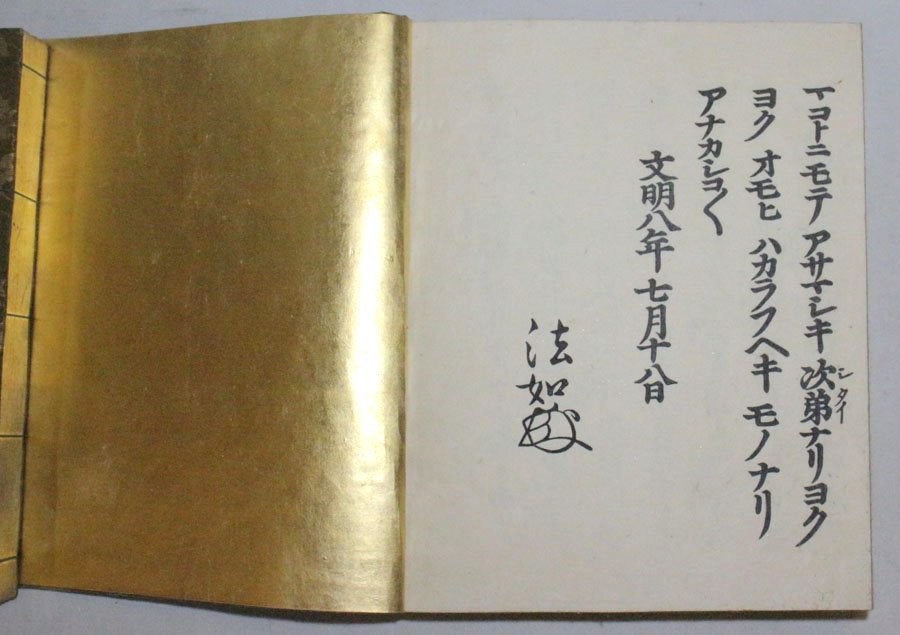 マコトニモテ アサマシキ 次弟ナリヨク
シタイ
ヨク オモヒ ハカラフヘキ モノナリ
アナカシコ〱
文明八年七月十八日
法如